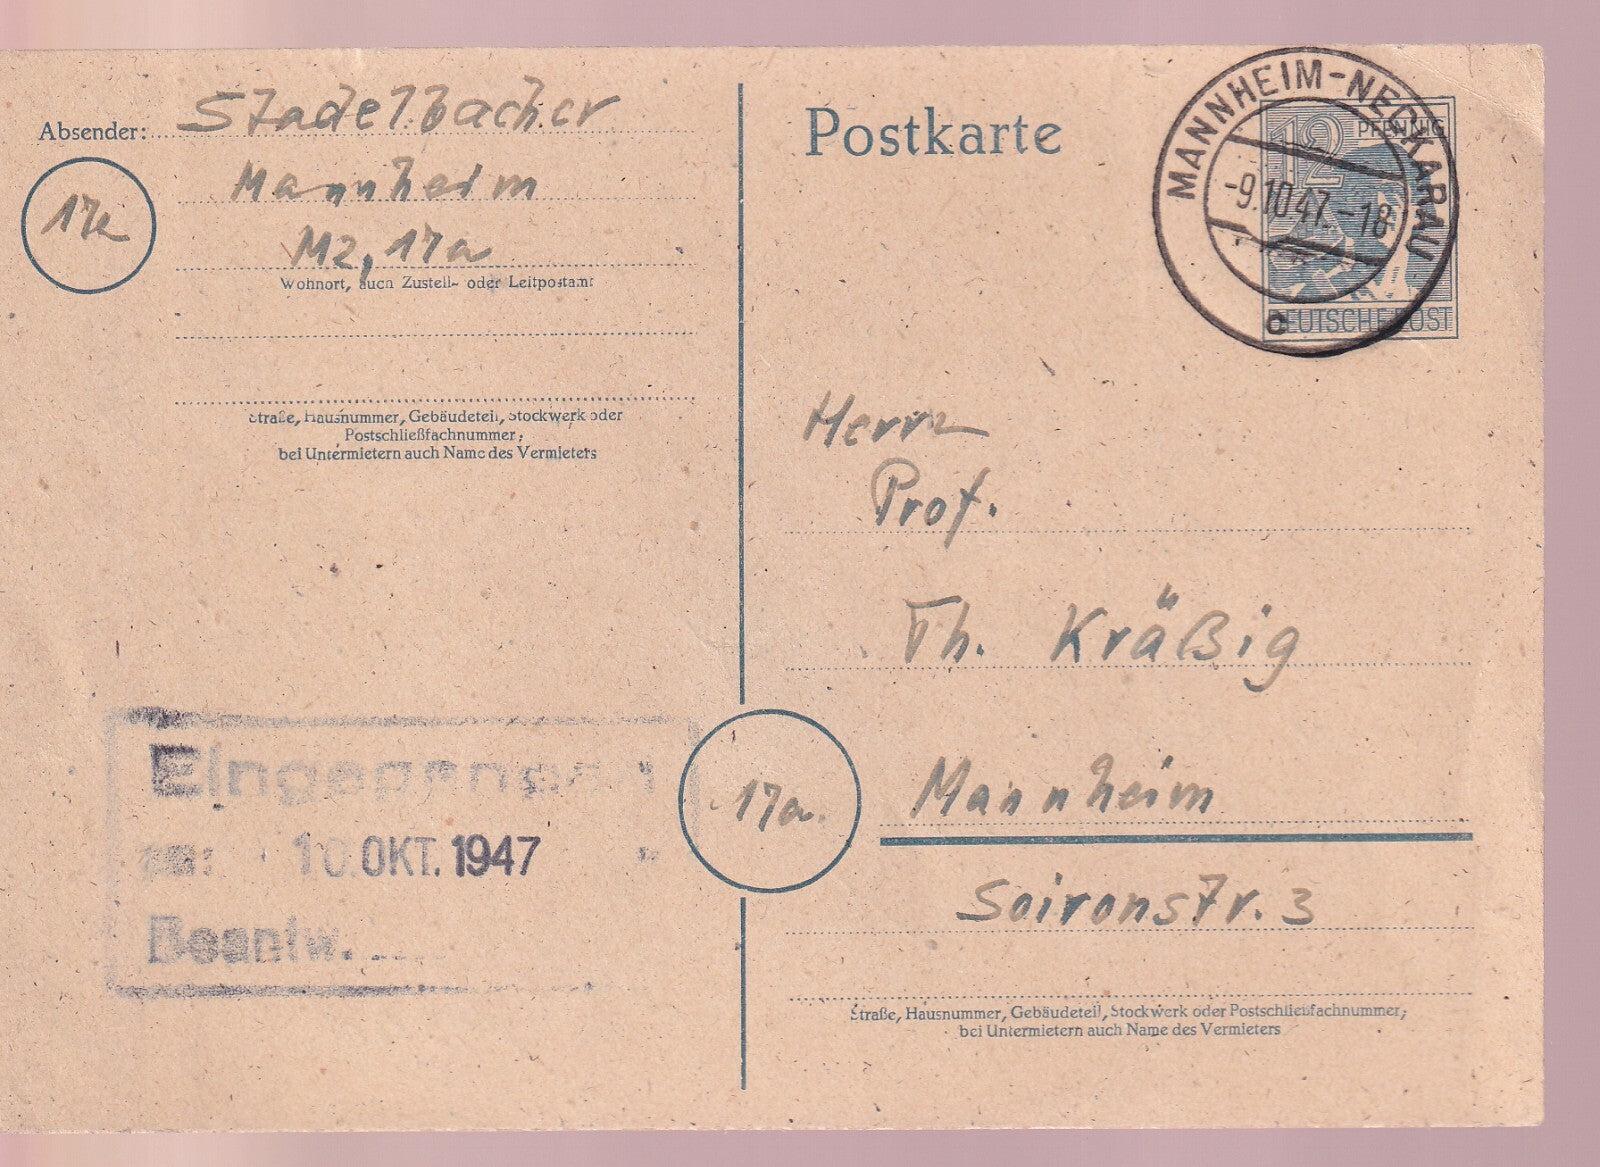 Absender: Stadelbacher
17a
Mannheim
M2, 17a
Wohnort, auch Zustell- oder Leitpostamt
Straße, Hausnummer, Gebäudeteil, Stockwerk oder
Postschließfachnummer;
bei Untermietern auch Name des Vermieters
Postkarte
MANNHEIM-NECKARAU
-9.10.47.-18
c
12 PFENNIG
DEUTSCHE POST
Herrn
Prof.
Th. Kräßig
17a.
Mannheim
Soironstr. 3
Straße, Hausnummer, Gebäudeteil, Stockwerk oder Postschließfachnummer;
bei Untermietern auch Name des Vermieters
Eingegangen
am: 10. OKT. 1947
Beantw.